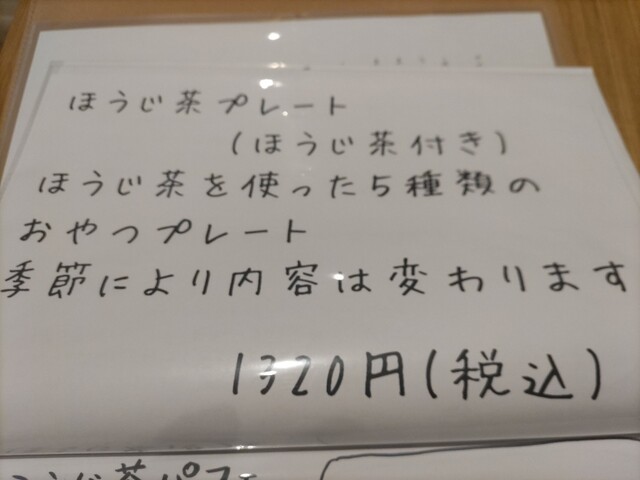 ほうじ茶プレート
(ほうじ茶付き)
ほうじ茶を使った5種類の
おやつプレート
季節により内容は変わります
1320円(税込)
うじ茶パフェ